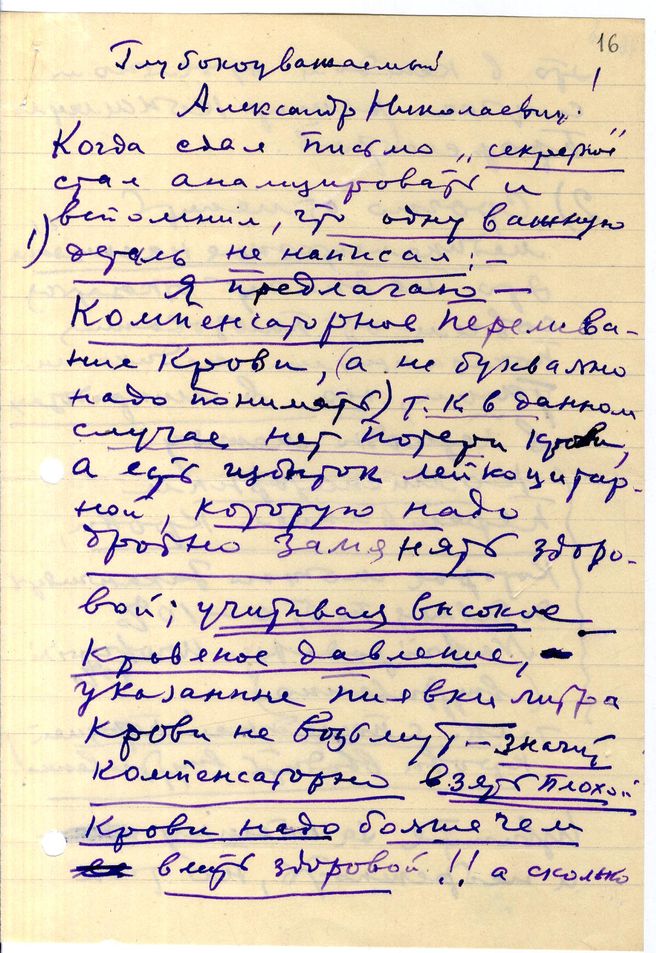 16
Глубокоуважаемый
Александр Николаевич!
Когда сдал письмо „секретное"
стал анализировать и
вспомнил, что одну важную
1) деталь не написал: —
Я предлагаю —
Компенсаторное перелива-
ние крови, (а не буквально
надо понимать) т. к в данном
случае нет потери крови,
а есть избыток лейкоцитар-
ной, которую надо
дробно заменять здоро-
вой; учитывая высокое
кровеное давление,
указанные пиявки литра
крови не возьмут — значит
компенсаторно взять плохой
крови надо больше чем
влить здоровой!! а сколько